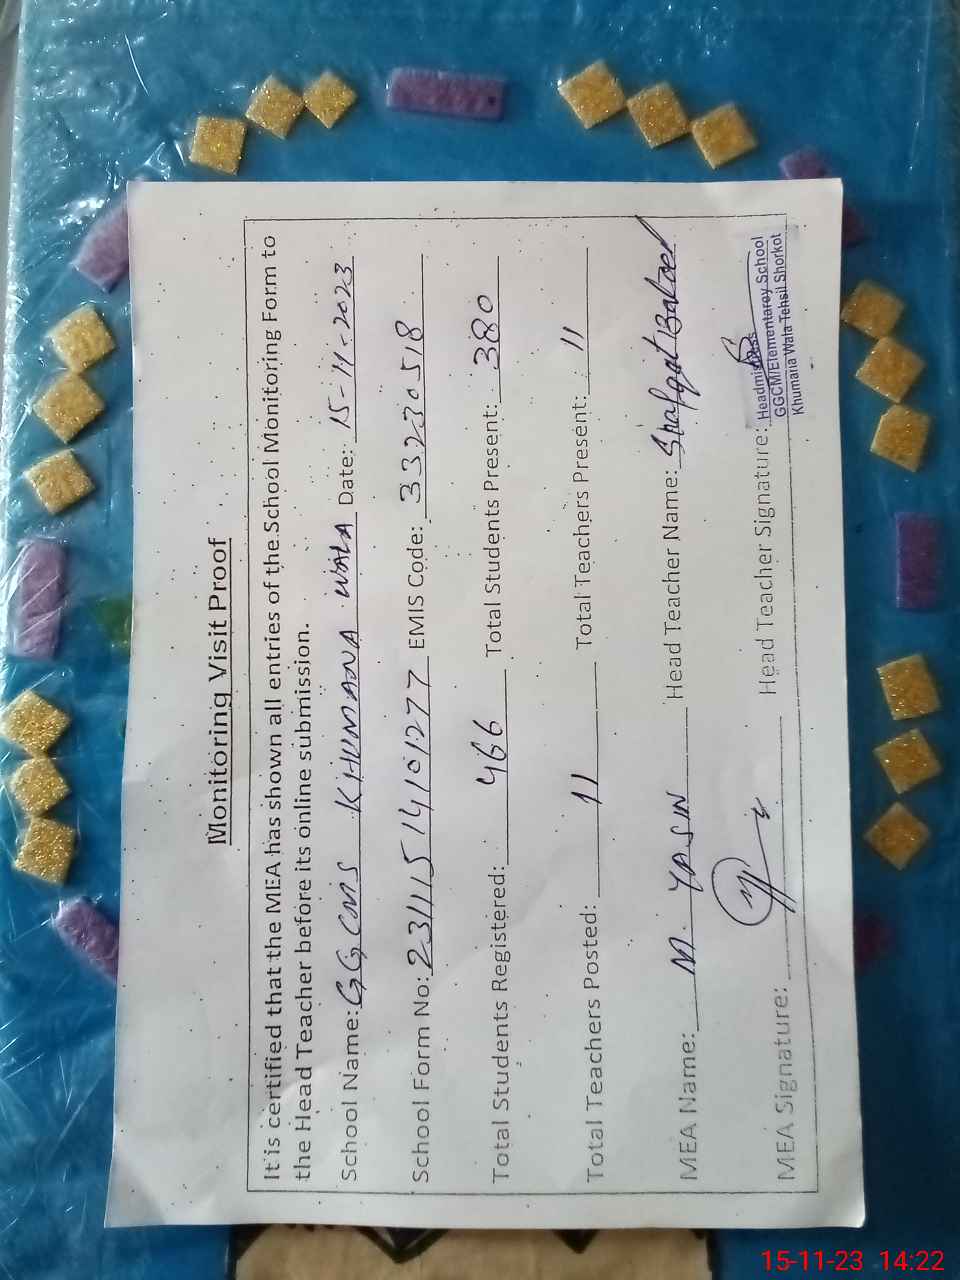 Monitoring Visit Proof
It is certified that the MEA has shown all entries of the School Monitoring Form to
the Head Teacher before its online submission.
School Name: GGCMS KHUMANA WALA Date: 15-11-2023
School Form No: 23111514101277 EMIS Code: 33230518
Total Students Registered: 466 Total Students Present: 380
Total Teachers Posted: 11 Total Teachers Present: 11
MEA Name: M. YASIN Head Teacher Name: Shafqat Batool
MEA Signature: Head Teacher Signature:
Headmistress
GGCM/Elementarey School
Khumaria Wala Tehsil Shorkot
15-11-23 14:22